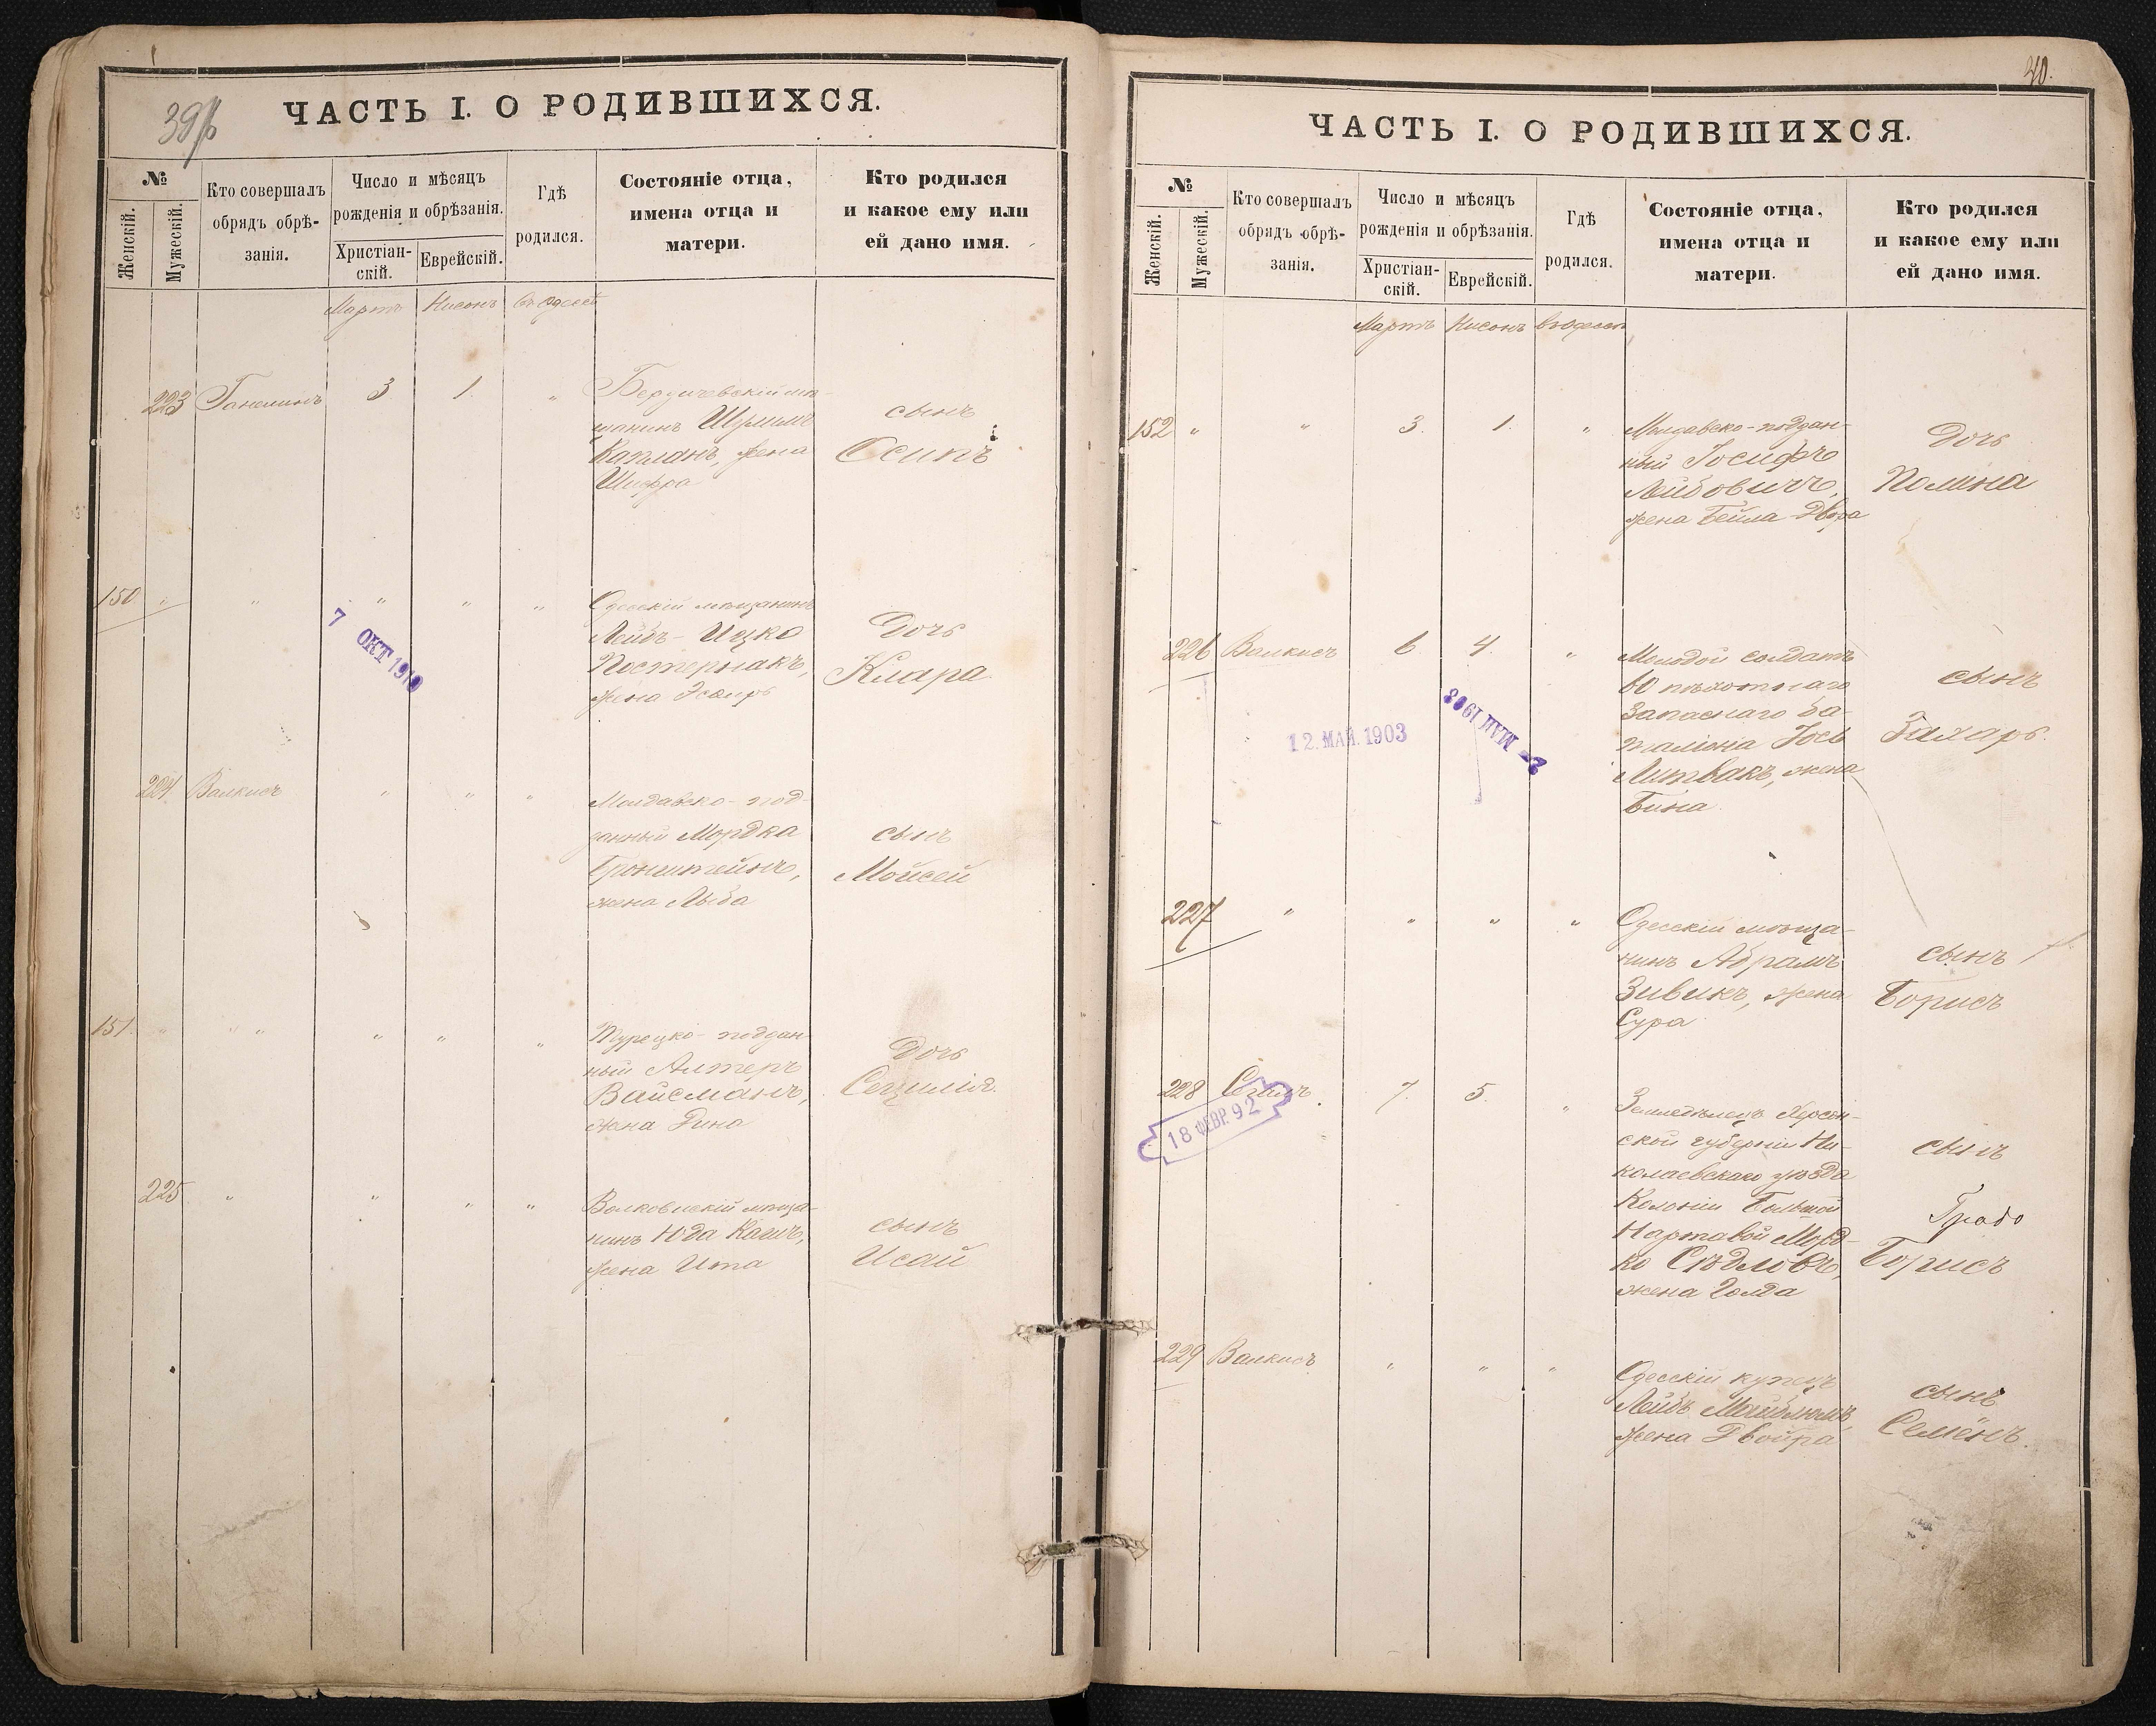 ЧАСТЬ I. О РОДИВШИХСЯ.
№
Женскій.
Мужескій.
Кто совершалъ
обрядъ обрѣ-
занія.
Число и мѣсяцъ
рожденія и обрѣзанія.
Христіан-
скій.
Еврейскій.
Гдѣ
родился.
Состояніе отца,
имена отца и
матери.
Кто родился
и какое ему или
ей дано имя.
Мартъ Нисонъ въ Одессѣ
223 3 1 „
Бердичевскій мѣ-
щанинъ
Капланъ, жена
Шифра
сынъ
Осипъ
150 „ „ „ „ „
Одесскій мѣщанинъ
Лейбъ-Ицко
Постернакъ,
жена Эсѳирь
Дочь
Клара
7 ОКТ 1910
224 Валкисъ „ „ „
Молдавско-под-
данный Мордка
Бронштейнъ,
жена Либа
сынъ
Мойсей
151 „ „ „ „ „ „
Турецко-поддан-
ный Алтеръ
Вайсманъ,
жена Дина
Дочь
Сецилія.
225 „ „ „ „
Волковискій мѣща-
нинъ Юда Каганъ,
жена Ита
сынъ
Исай
40.
ЧАСТЬ I. О РОДИВШИХСЯ.
№
Женскій.
Мужескій.
Кто совершалъ
обрядъ обрѣ-
занія.
Число и мѣсяцъ
рожденія и обрѣзанія.
Христіан-
скій.
Еврейскій.
Гдѣ
родился.
Состояніе отца,
имена отца и
матери.
Кто родился
и какое ему или
ей дано имя.
Мартъ Нисонъ въ Одессѣ
152 „ „ 3. 1. „
Молдавско-поддан-
ный Іосифъ
Лейбовичъ,
жена Бейла Двора
Дочь
Полина
226 Валкисъ 6 4. „
Молодой солдатъ
60 пѣхотнаго
Запаснаго ба-
таліона Іось
Литвакъ, жена
Бина
сынъ
Захаръ.
12. МАЙ. 1903
2- МАЙ 1903
227 „ „ „ „
Одесскій мѣща-
нинъ Абрамъ
Зивикъ, жена
Сура
сынъ
Борисъ
228 7. 5. „
Земледѣлецъ Херсон-
ской губерніи Ни-
колаевскаго уѣзда
Колоніи Большой
Нартавой Морд-
ко Сѣдловъ,
жена Голда
сынъ
Борисъ
18 ФЕВР. 92
229 Валкисъ „ „ „
Одесскій купецъ
Лейбъ
жена Двойра
сынъ
Семёнъ.